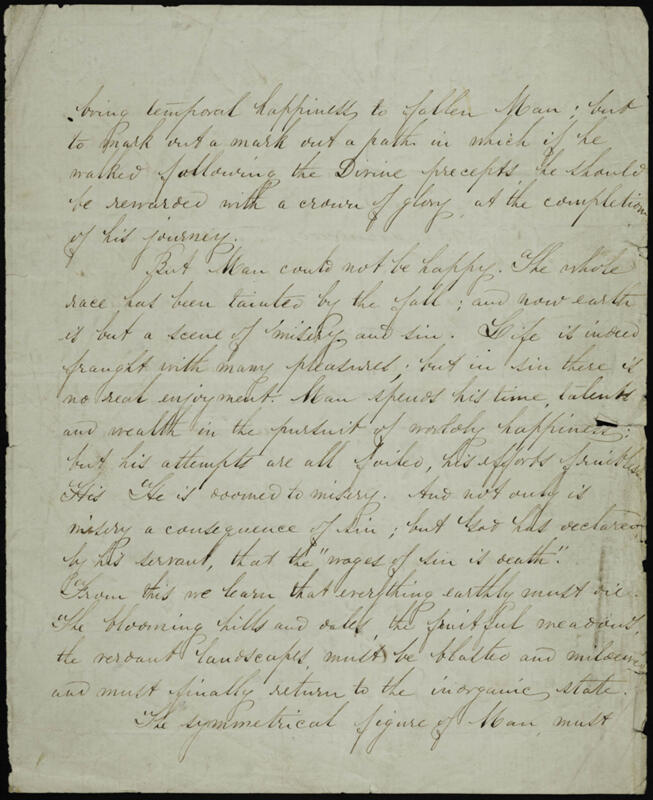 bring temporal happiness to fallen Man; but
to mark out a mark out a path in which if he
walked following the Divine precepts, he should
be rewarded with a crown of glory, at the completion
of his journey.
But Man could not be happy. The whole
race has been tainted by the fall; and now earth
is but a scene of misery and sin. Life is indeed
fraught with many pleasures; but in sin there is
no real enjoyment. Man spends his time, talents
and wealth in the pursuit of worldly happiness;
but his attempts are all foiled, his efforts fruitless
His He is doomed to misery. And not only is
misery a consequence of sin; but God has declared
by his servant, that the "wages of sin is death".
From this we learn that everything earthly must die.
The blooming hills and dales, the fruitful meadows,
the verdant landscapes, must be blasted and mildewed
and must finally return to the inorganic state.
The symmetrical figure of Man, must